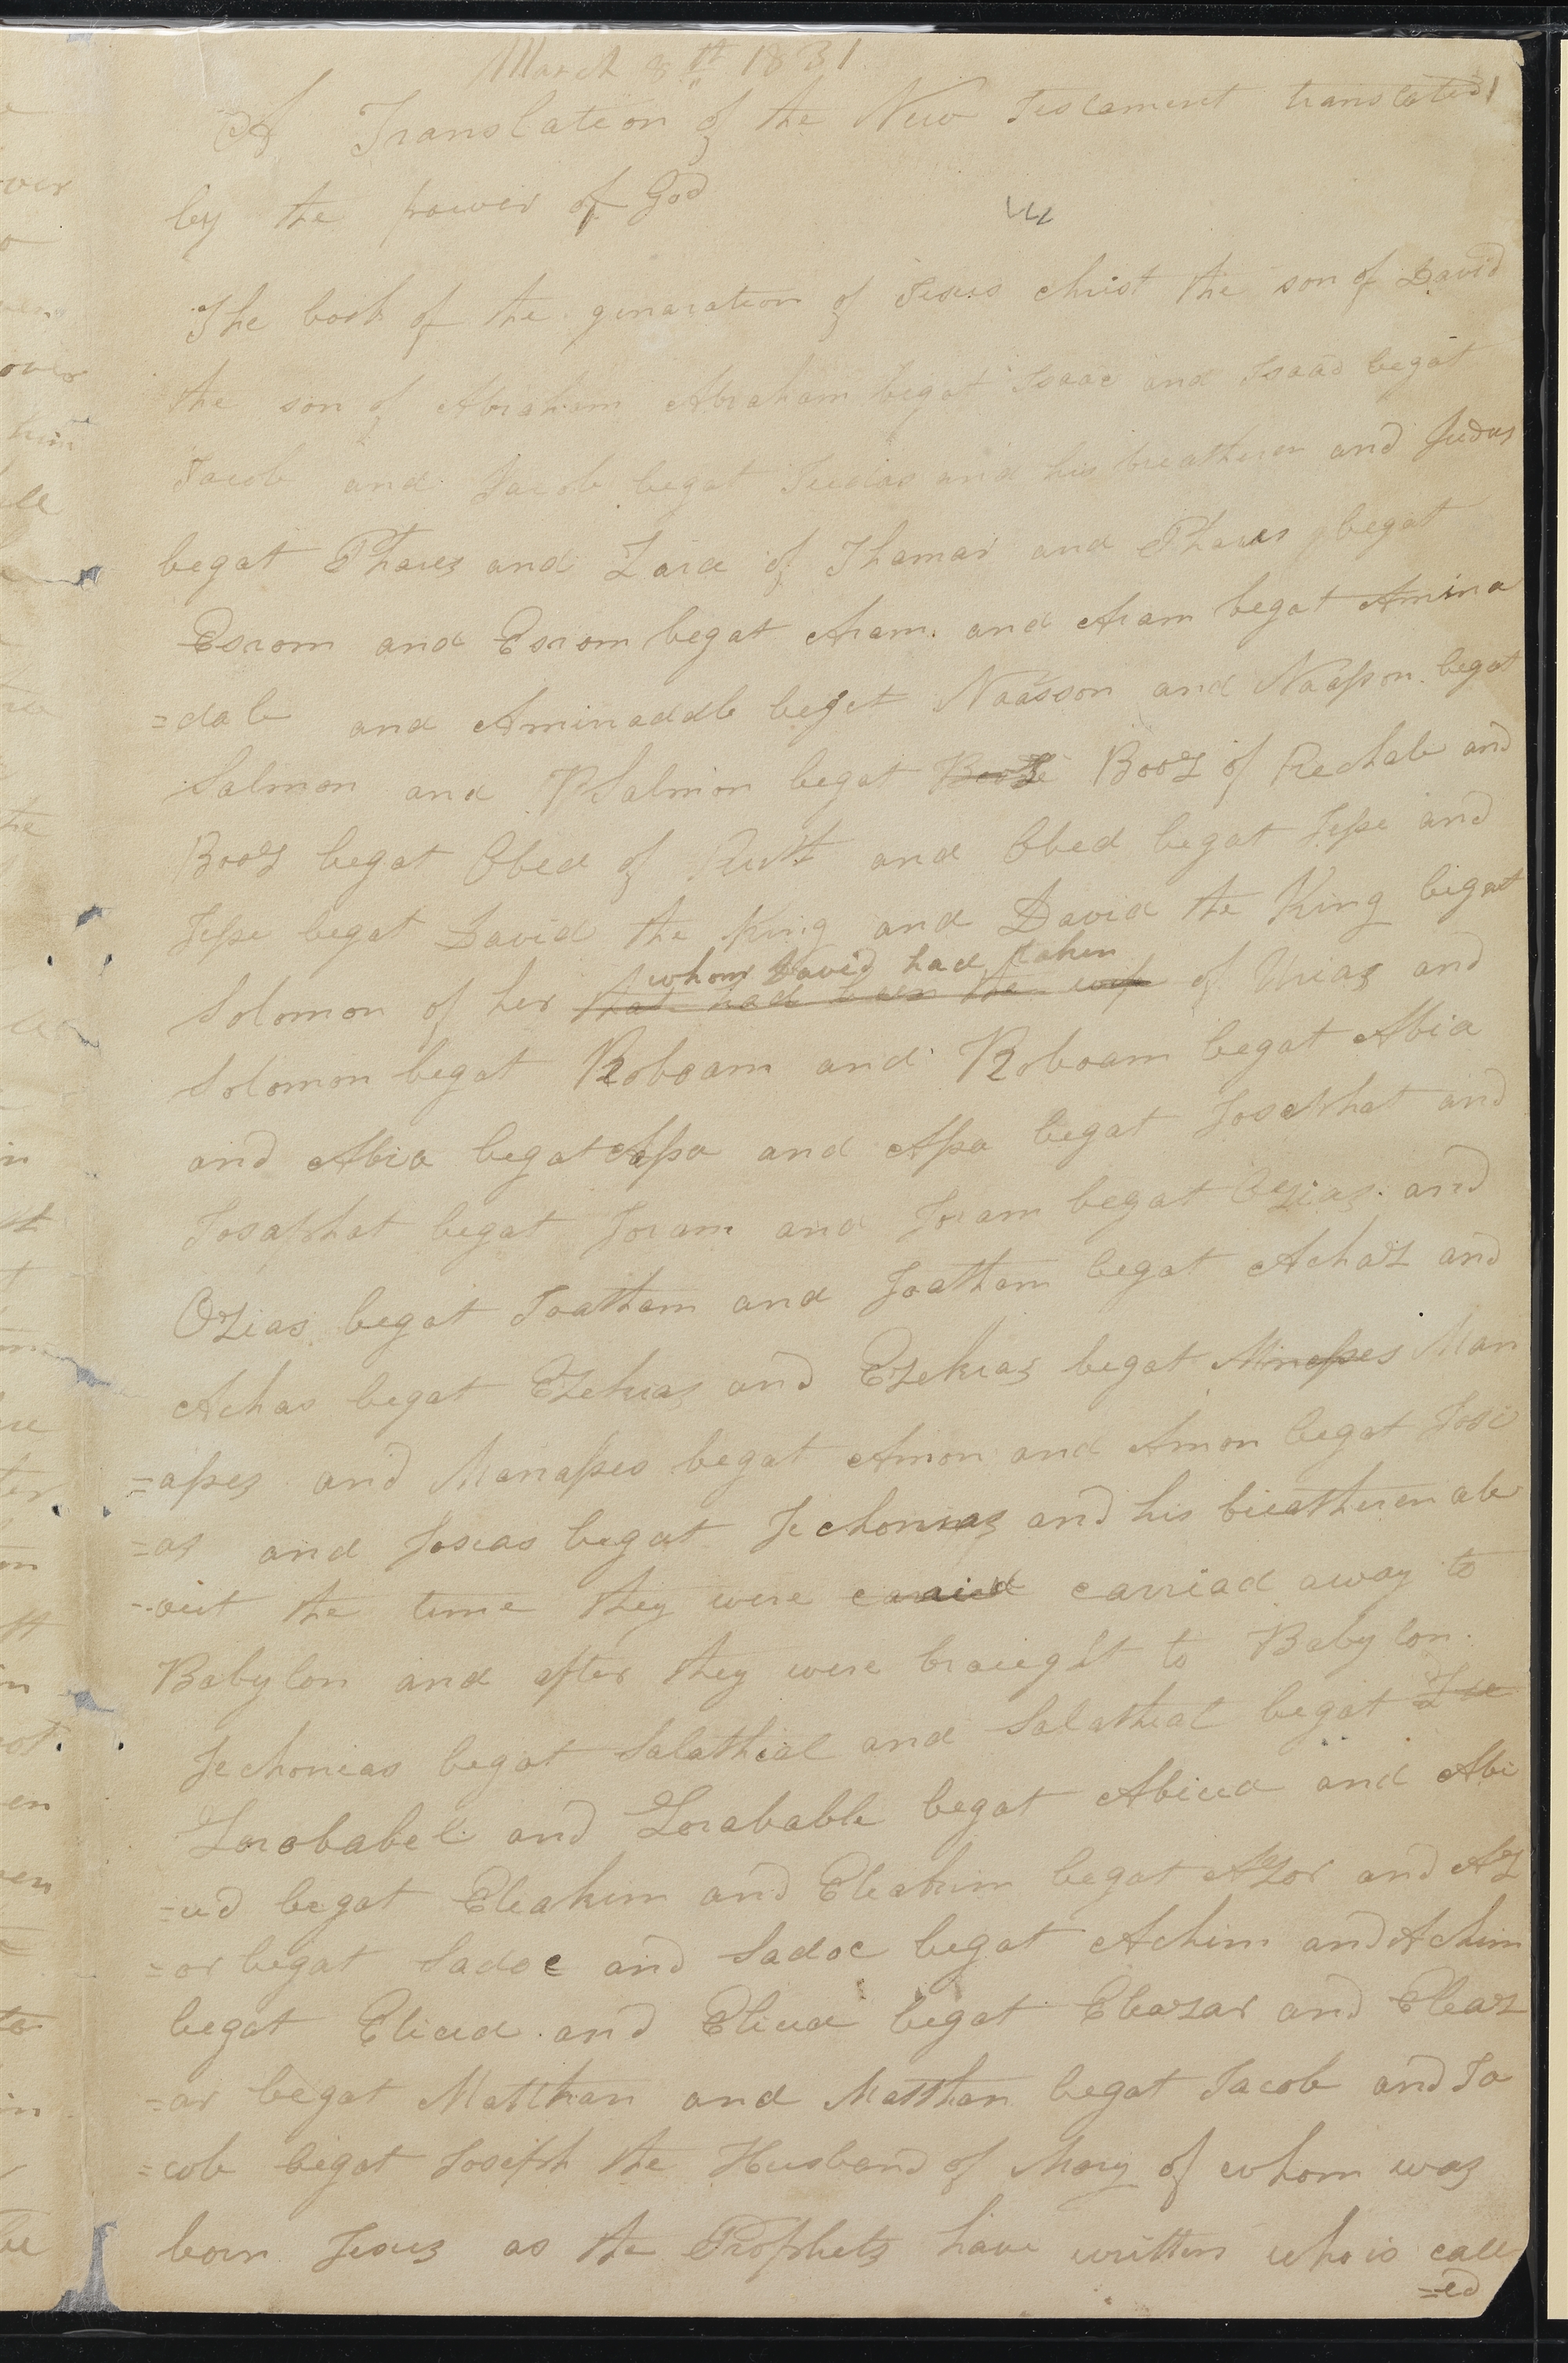 March 8th 1831
A Translation of the New Testament translated
by the power of God
The book of the genaration of Jesus Christ the son of David
the son of Abraham Abraham begat Isaac and Isaac begat
Jacob and Jacob begat Judas and his breatheren and Judas
begat Phares and Zara of Thamar and Phares begat
Esrom and Esrom begat Aram and Aram begat Amina
=dab and Aminaddb beget Naasson and Naasson begat
Salmon and PSalmon begat Booz of Rechab and
Booz begat Obed of Ruth and Obed begat Jesse and
Jesse begat David the King and David the King begat
whom David had taken
Solomon of her that had been the wife of Urias and
Solomon begat Roboam and Roboam begat Abia
and Abia begat Assa and Assa begat Josephat and
Josaphat begat Joram and Joram begat Ozias and
Ozias begat Joatham and Joatham begat Achaz and
Achas begat Ezekias and Ezekias begat Minasses Man
=asses and Manasses begat Amon and Amon begat Josi
=as and Joseas begat Jechonias and his breatheren ab
=out the time they were caraied carriad away to
Babylon and after they were braught to Babylon.
Jechoneas begat Salathial and Salathial begat Zue
Zorobabel and Zorabable begat Abiud and Abi
=ud begat Eleakim and Eleakim begat Azor and Az
=or begat Sadoc and Sadoc begat Achim and Achim
begat Eliud and Eliud begat Eleazar and Eleaz
=ar begat Matthan and Matthan begat Jacob and Ja
=cob begat Joseph the Husband of Mary of whom was
born Jesus as the Prophets have written who is call
=ed